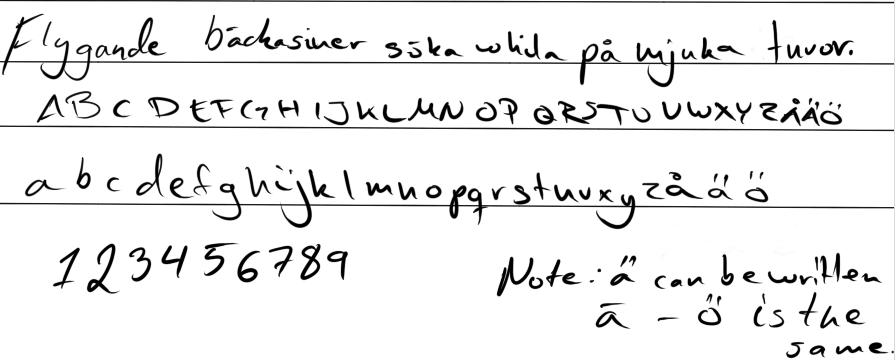 Flygande bäckasiner söka whila på mjuka tuvor.
A B C D E F G H I J K L M N O P Q R S T U V W X Y Z Å Ä Ö
a b c d e f g h i j k l m n o p q r s t u v x y z å ä ö
1 2 3 4 5 6 7 8 9
Note: ä can be written
ā - ö is the
same.